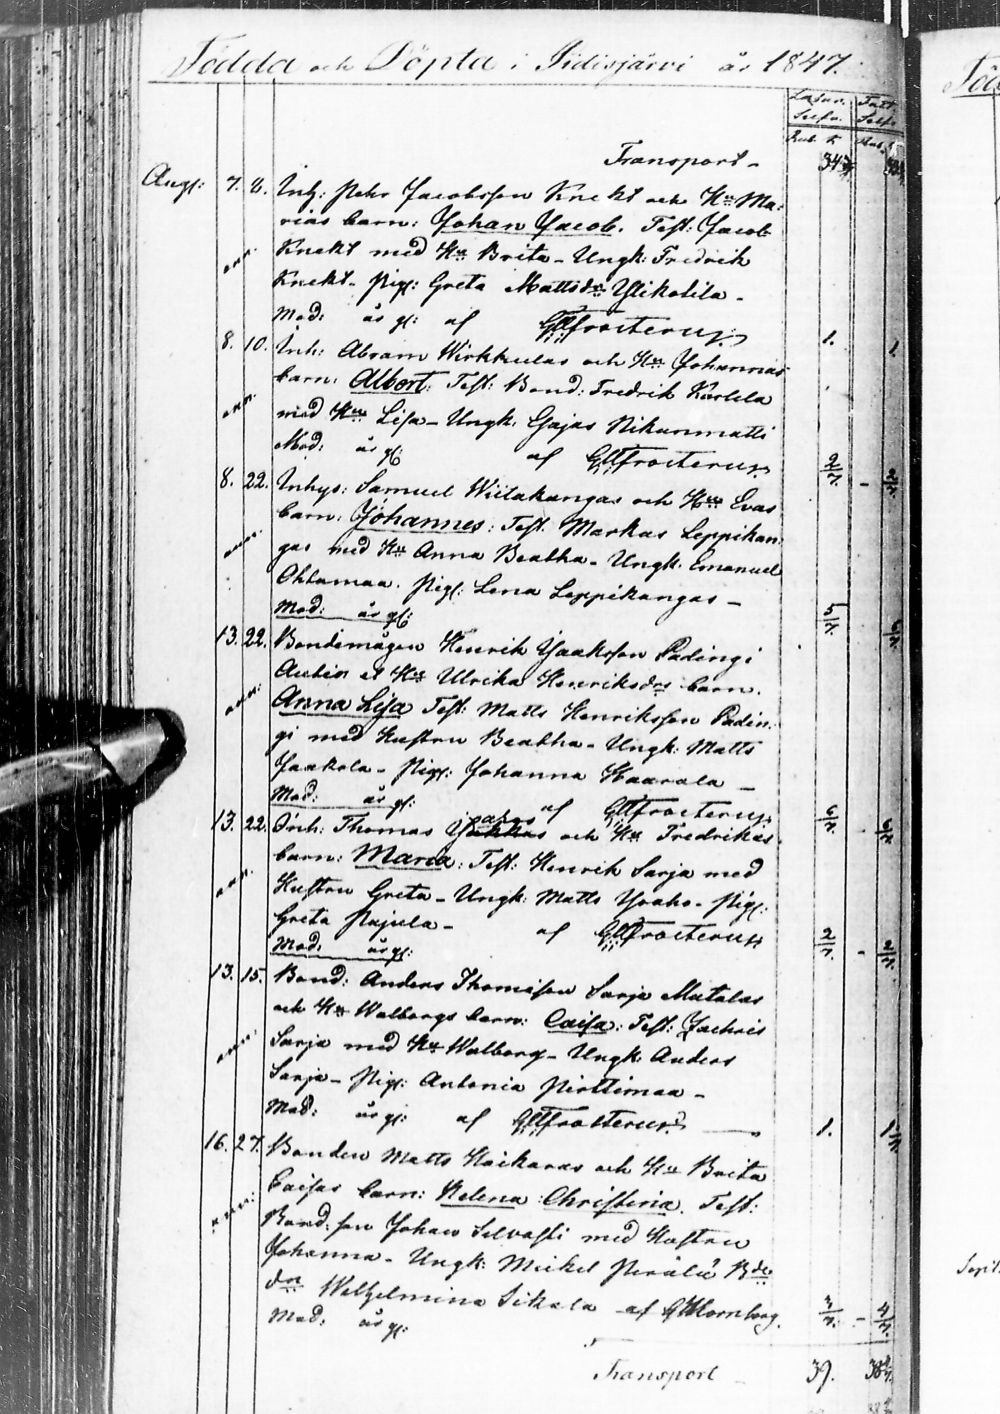 Födda och Döpta i Sidisjärvi år 1847.
Transport
Aug: 7. 8. Inh: Pehr Jacobsson Knekt och H:u Ma-
rias barn: Johan Jacob. Test: Jacob
Knekt med H:u Brita - Ungk: Fredrik
Knekt - Pig: Greta Mattsdr Ylikotila -
Mod: år gl: af Frosterus 1. 1.
8. 10. Inh: Abram Wirkkulas och H:u Johannas
barn: Albert: Test: Bond: Fredrik Karlela
med H:u Lisa - Ungk: Gajas Nikunmatti
Mod: år gl: af Frosterus
8. 22. Inhys: Samuel Wiitakangas och H:us Evas
barn: Johannes: Test. Markus Leppikan-
gas med H:u Anna Beatha - Ungk: Emanuel
Ohtamaa. Pig: Lena Leppikangas -
Mod: år gl:
13. 22. Bondemågen Henrik Jaaksson Padingi
et H:us Ulrika Henriksdrs barn.
Anna Lisa Test: Matts Henriksson Padin-
gi med Hustru Beatha - Ungk: Matts
Jaakola - Pig: Johanna Haarala -
Mod: år gl: af Frosterus
13. 22. Inh: Thomas och H:us Fredrikas
barn: Maria: Test: Henrik Sarja med
Hustru Greta - Ungk: Matts Yrahs - Pig:
Greta Pajula - af Frosterus
Mod: år gl:
13. 15. Bond: Anders Thomasson Sarja Matalas
och H:us Walborgs barn: Caisa: Test: Zachris
Sarja med H:u Walborg - Ungk: Anders
Sarja - Pig: Antonia Pirttimaa -
Mod: år gl: af Frosterus 1.
16. 27. Bonden Matts Haikaras och H:us Brita
Caisas barn: Helena Christina. Test:
Bond: son Johan Silvasti med Hustru
Johanna - Ungk: Mickel Perälä B:de
drn Wilhelmina Sikala - af Hornborg.
Mod: år gl:
Transport 39.